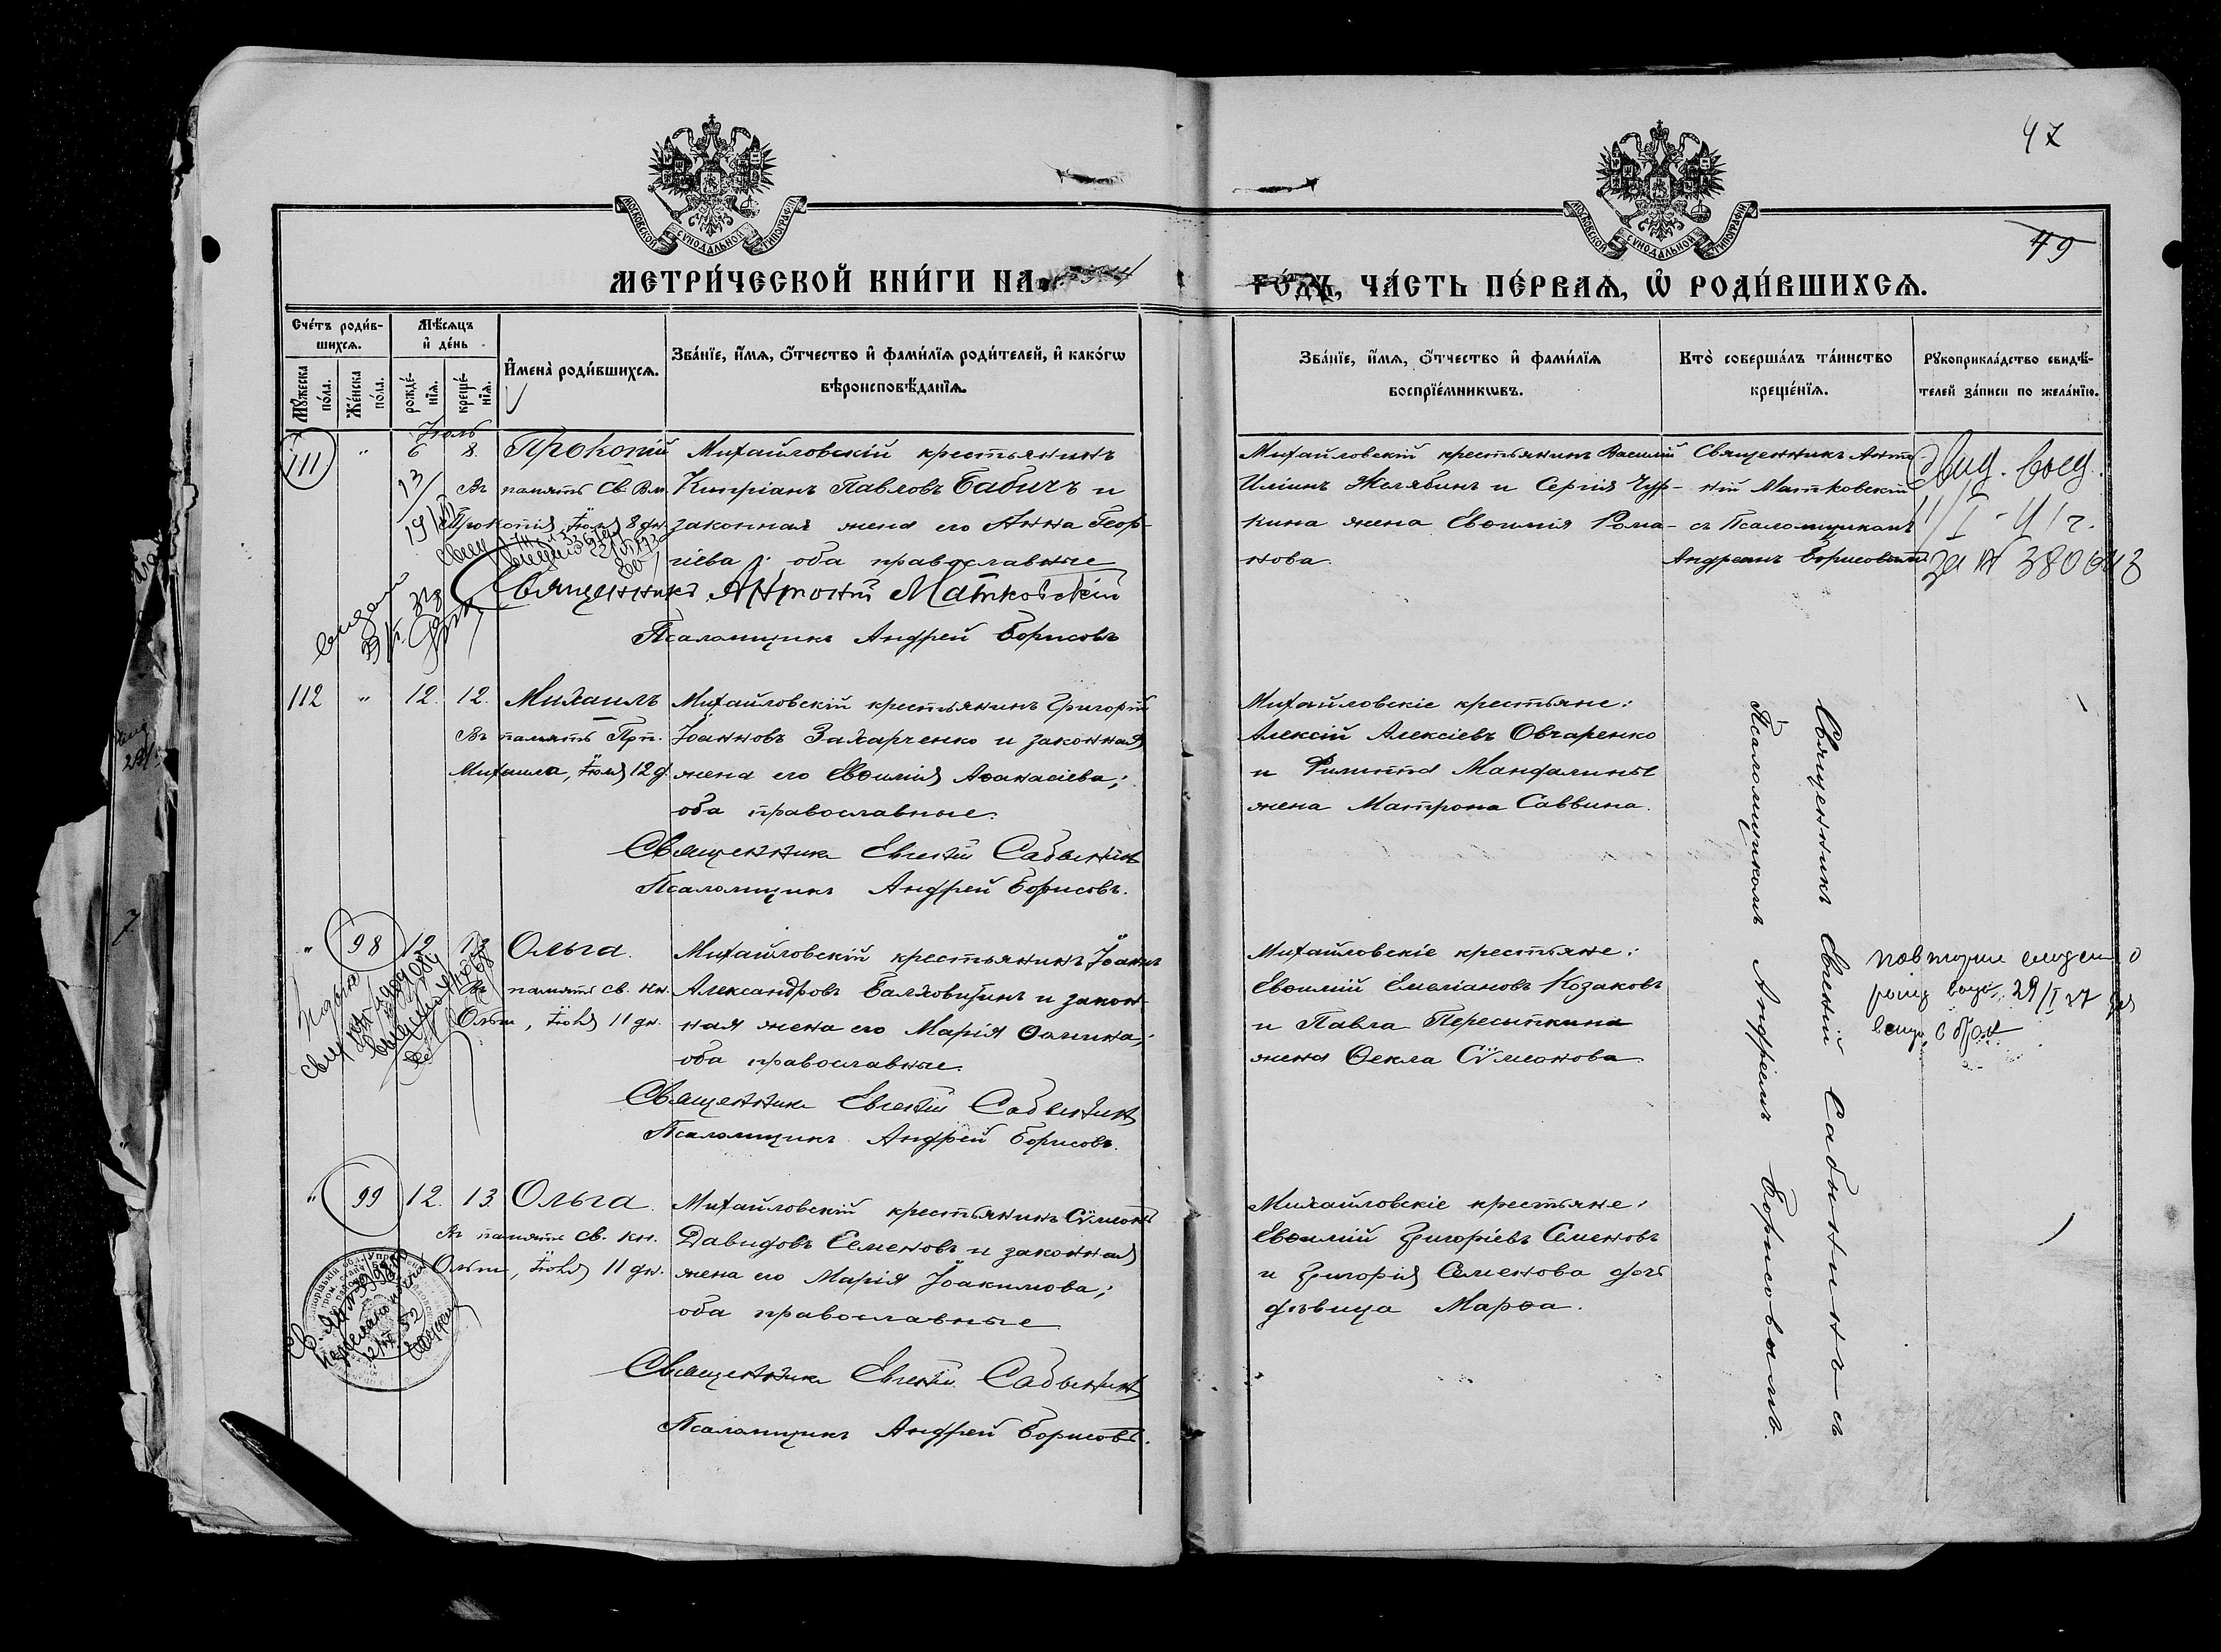 47
49
МОСКОВСКОЙ СѴНОДАЛЬНОЙ ТИПОГРАФІИ
МОСКОВСКОЙ СѴНОДАЛЬНОЙ ТИПОГРАФІИ
МЕТРИ́ЧЕСКОЙ КНИ́ГИ НА
ГО́ДЪ, ЧА́СТЬ ПЕ́РВАѦ, Ѡ҆ РОДИ́ВШИХСѦ.
Сче́тъ роди́в-
шихсѧ.
Мꙋ́жеска по́ла.
Же́нска по́ла.
Мѣ́сѧцъ
и҆ де́нь
рожде́-
нїѧ.
креще́-
нїѧ.
И҆мена̀ роди́вшихсѧ.
Зва́нїе, и҆́мѧ, ѻ҆́тчество и҆ фами́лїѧ роди́телей, и҆ како́гѡ
вѣроисповѣ́данїѧ.
Зва́нїе, и҆́мѧ, ѻ҆́тчество и҆ фами́лїѧ
воспрїе́мникѡвъ.
Кто̀ соверша́лъ та́инство
креще́нїѧ.
Рꙋкоприкла́дство свидѣ́-
телей за́писи по жела́нїю.
Іюль
111 " 6 8. Прокопій
Въ память Св. Вм.
Прокопія, Іюля 8 дн.
Михайловскій крестьянинъ
Кипріанъ Павловъ Бабичъ и
законная жена его Анна Геор-
гіева; оба православные
Священникъ Антоній Матковскій
Псаломщикъ Андрей Борисовъ
Михайловскій крестьянинъ Василій
Иліинъ Желябинъ и Сергія Чур-
кина жена Евѳимія Рома-
нова.
Священникъ Анто-
ній Матковскій
съ Псаломщикомъ
Андреемъ Борисовымъ
112 " 12. 12. Михаилъ
Въ память Прп.
Михаила, Іюля 12 д.
Михайловскій крестьянинъ Григорій
Іоанновъ Захарченко и законная
жена его Евѳимія Аѳанасіева;
оба православные.
Священникъ Евгеній Сабынинъ
Псаломщикъ Андрей Борисовъ.
Михайловскіе крестьяне:
Алексій Алексіевъ Овчаренко
и Филиппа Мандалины
жена Матрона Саввина.
Священникъ Евгеній Сабынинъ съ
Псаломщикомъ Андреемъ Борисовымъ.
" 98 12 13 Ольга.
Въ память св. кн.
Ольги, Іюля 11 дн.
Михайловскій крестьянинъ Іоаннъ
закон-
ная жена его Марія Ѳомина;
оба православные.
Священникъ Евгеній Сабынинъ
Псаломщикъ Андрей Борисовъ.
Михайловскіе крестьяне:
Евѳимій Емеліановъ Козаковъ
и Павла Пересыпкина
жена Ѳекла Сѵмеонова
29/I 27
" 99 12. 13. Ольга.
Въ память св. кн.
Ольги, Іюля 11 дн.
Михайловскій крестьянинъ Сѵмеонъ
Давидовъ Семеновъ и законная
жена его Марія Іоакимова;
оба православные
Священникъ Евгеній Сабынинъ
Псаломщикъ Андрей Борисовъ.
Михайловскіе крестьяне:
Евѳимій Григоріевъ Семеновъ
и Григорія Семенова дочь
дѣвица Марѳа.